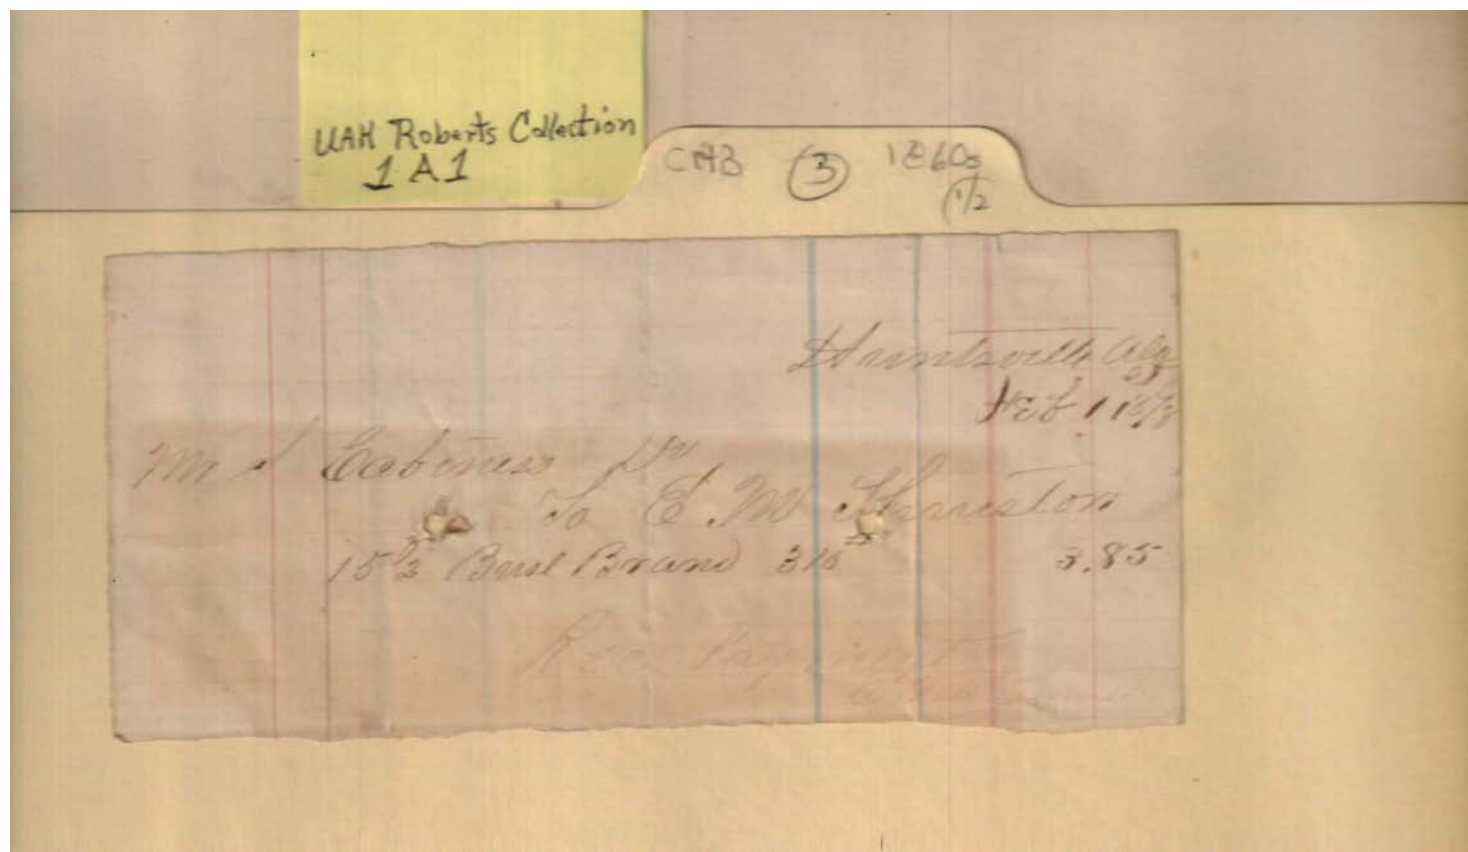 UAH Roberts Collection
1 A 1
CAB 3 1860s
1/2
Huntsville Ala
Feb 11
Mr S Cabiness Dr
To E. M Thurston
15 1/2 Brand 3.85
Rec Payment